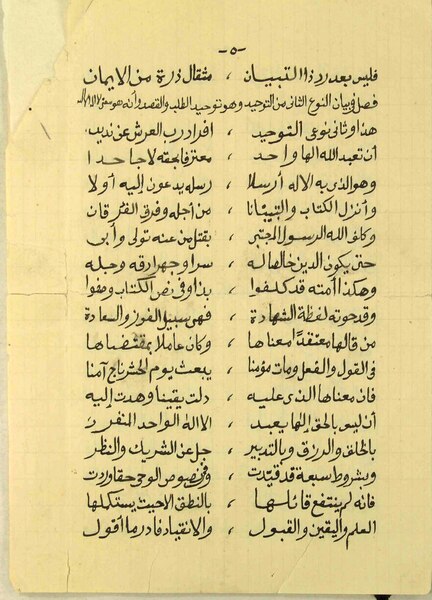 -٥-
فليس بعد رد ذا التبيان ، مثقال ذرة من الايمان
فصل في بيان النوع الثاني من التوحيد وهو توحيد الطلب والقصد وأنه هو معنى لا اله الا الله
هذا وثاني نوعي التوحيد ، افراد رب العرش عن نديد
أن تعبد الله الها واحدا ، معترفا بحقه لا جاحدا
وهو الذي به الاله أرسلا ، رسله يدعون إليه أولا
وأنزل الكتاب والتبيانا ، من أجله وفرق الفرقانا
وكلف الله الرسول المجتبى ، بقتل من عنه تولى وأبى
حتى يكون الدين خالصا له ، سرا وجهرا دقه وجله
وهكذا أمته قد كلفوا ، بذا وفي نص الكتاب وصفوا
وقد حوته لفظة الشهادة ، فهي سبيل الفوز والسعادة
من قالها معتقدا معناها ، وكان عاملا بمقتضاها
في القول والفعل ومات مؤمنا ، يبعث يوم الحشر ناج آمنا
فان معناها الذي عليه ، دلت يقينا وهدت إليه
أن ليس بالحق إله يعبد ، الا اله الواحد المنفرد
بالخلق والرزق وبالتدبير ، جل عن الشريك والنظير
وبشروط سبعة قد قيدت ، وفي نصوص الوحي حقا وردت
فانه لم ينتفع قائلها ، بالنطق الا حيث يستكملها
العلم واليقين والقبول ، والانقياد فادر ما أقول